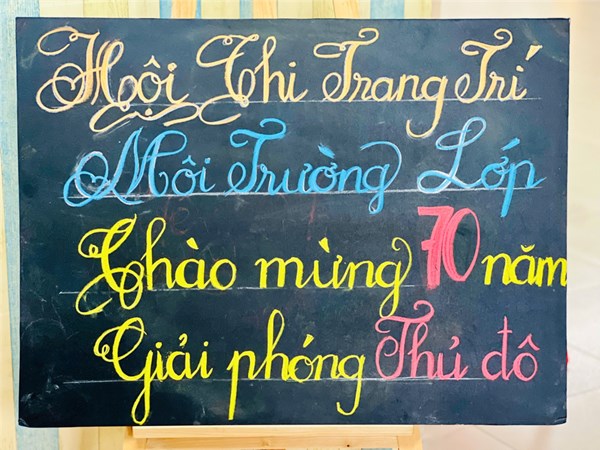 Hội Thi Trang Trí
Môi Trường Lớp
Chào mừng 70 năm
Giải phóng Thủ đô